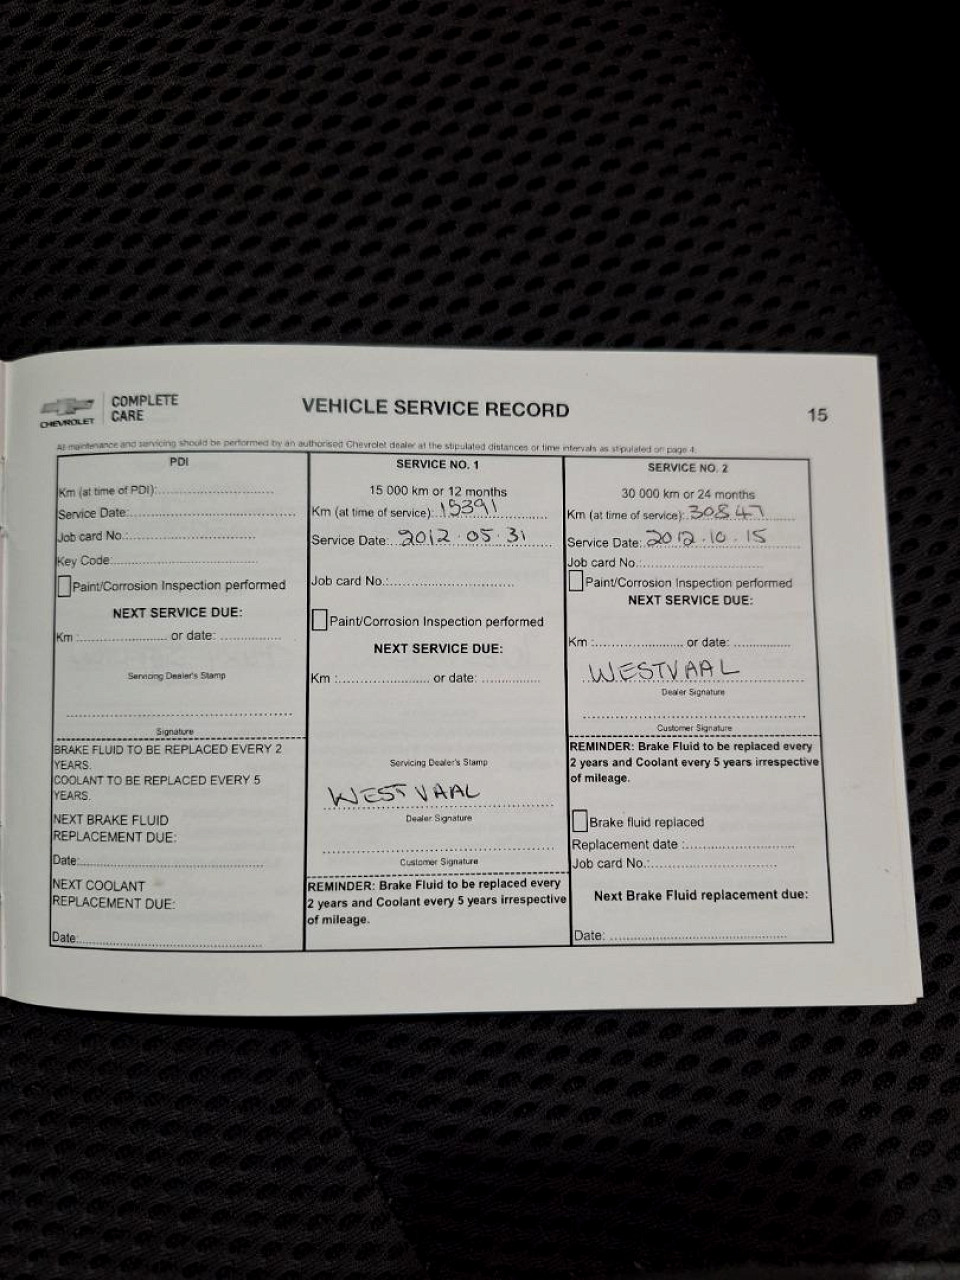 CHEVROLET
COMPLETE
CARE
VEHICLE SERVICE RECORD
15
All maintenance and servicing should be performed by an authorised Chevrolet dealer at the stipulated distances or time intervals as stipulated on page 4.
PDI
Km (at time of PDI):
Service Date:
Job card No.:
Key Code:
Paint/Corrosion Inspection performed
NEXT SERVICE DUE:
Km : or date:
Servicing Dealer's Stamp
Signature
BRAKE FLUID TO BE REPLACED EVERY 2
YEARS.
COOLANT TO BE REPLACED EVERY 5
YEARS.
NEXT BRAKE FLUID
REPLACEMENT DUE:
Date:
NEXT COOLANT
REPLACEMENT DUE:
Date:
SERVICE NO. 1
15 000 km or 12 months
Km (at time of service): 15391
Service Date: 2012.05.31
Job card No.:
Paint/Corrosion Inspection performed
NEXT SERVICE DUE:
Km : or date:
Servicing Dealer's Stamp
WESTVAAL
Dealer Signature
Customer Signature
REMINDER: Brake Fluid to be replaced every
2 years and Coolant every 5 years irrespective
of mileage.
SERVICE NO. 2
30 000 km or 24 months
Km (at time of service): 30847
Service Date: 2012.10.15
Job card No.:
Paint/Corrosion Inspection performed
NEXT SERVICE DUE:
Km : or date:
WESTVAAL
Dealer Signature
Customer Signature
REMINDER: Brake Fluid to be replaced every
2 years and Coolant every 5 years irrespective
of mileage.
Brake fluid replaced
Replacement date :
Job card No.:
Next Brake Fluid replacement due:
Date: